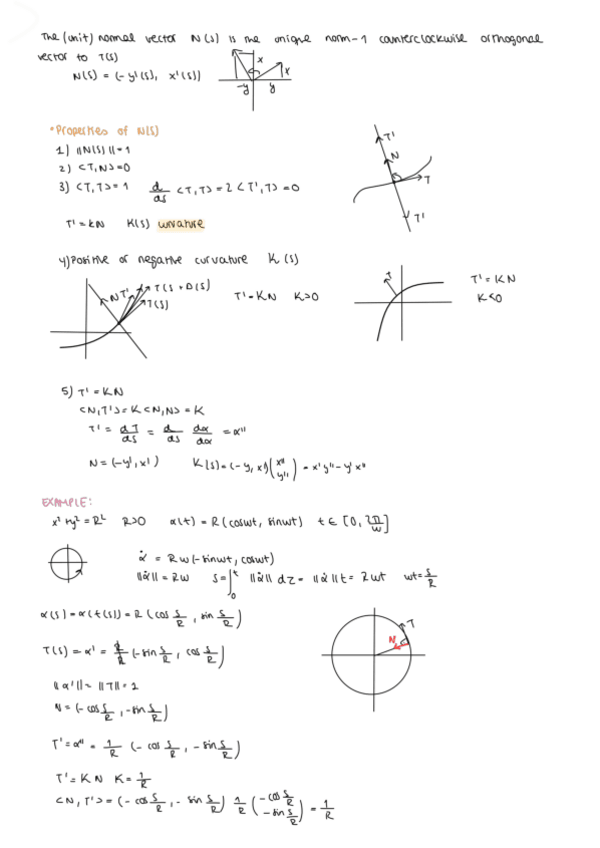 The (unit) normal vector N(s) is the unique norm-1 counterclockwise orthogonal
vector to T(s)
N(s) = (-y'(s), x'(s))
x
x
-y
y
• Properties of N(s)
1) ||N(s)|| = 1
2) <T,N> = 0
3) <T,T> = 1 d/ds <T,T> = 2 <T',T> = 0
T' = kN K(s) curvature
T'
N
T
T'
4) Positive or negative curvature K (s)
N T' T(s + Δ(s)
T(s)
T' = KN K>0
T' = KN
K<0
5) T' = KN
<N,T'> = K <N,N> = K
T' = dT/ds = d/ds dα/dα = α''
N = (-y', x') K(s) = (-y, x') (x'' y'') = x'y'' - y'x''
EXAMPLE:
x² + y² = R² R>0 α(t) = R (cos wt, sin wt) t ∈ [0, 2π/w]
α̇ = R w (- sin wt, cos wt)
||α̇|| = R w s = ∫₀ᵗ ||α̇|| dz = ||α̇|| t = R wt wt = s/R
α(s) = α(t(s)) = R (cos s/R, sin s/R)
T(s) = α' = R/R (- sin s/R, cos s/R)
T
N
||α'|| = ||T|| = 1
N = (- cos s/R, - sin s/R)
T' = α'' = 1/R (- cos s/R, - sin s/R)
T' = K N K = 1/R
<N, T'> = (- cos s/R, - sin s/R) 1/R (- cos s/R - sin s/R) = 1/R